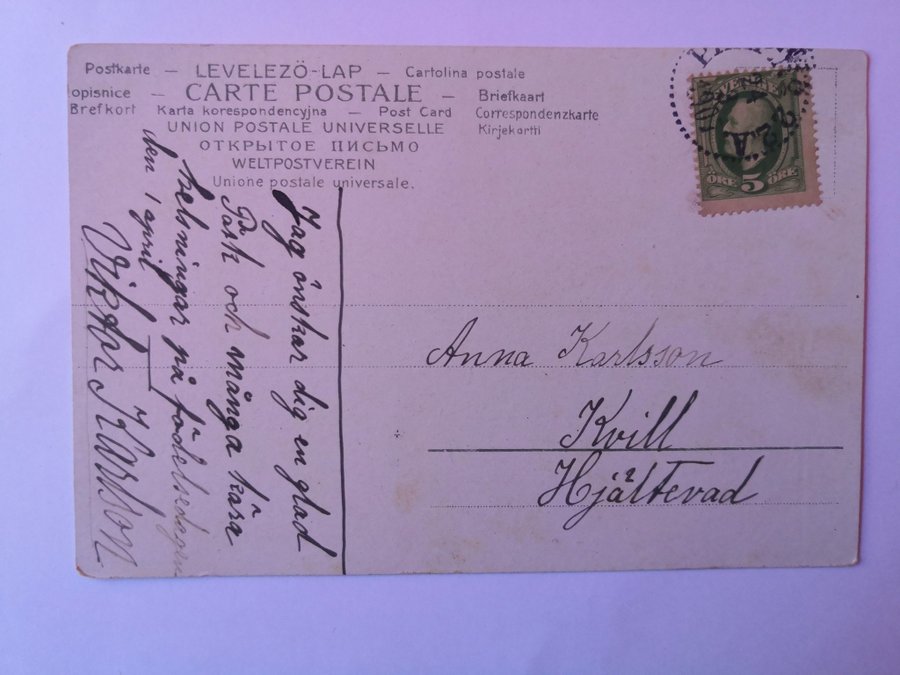 Postkarte — LEVELEZÖ-LAP — Cartolina postale
opisnice — CARTE POSTALE — Briefkaart
Brefkort Karta korespondencyjna — Post Card Correspondenzkarte
UNION POSTALE UNIVERSELLE Kirjekortti
ОТКРЫТОЕ ПИСЬМО
WELTPOSTVEREIN
Unione postale universale.
SVERIGE
ÖRE 5 ÖRE
Jag önskar dig en glad
Påsk och många kära
helsningar på födelsedagen
den 1 april
Viktor Karlsson
Anna Karlsson
Kvill
Hjältevad